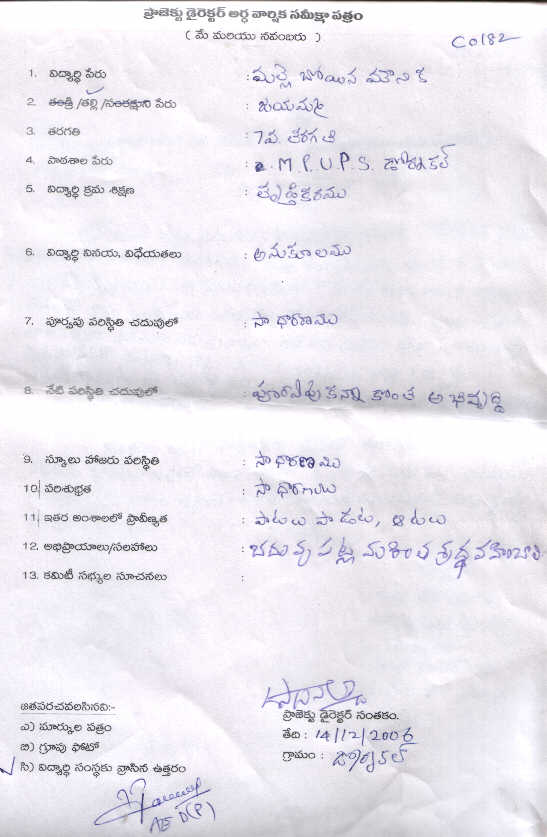 ప్రాజెక్టు డైరెక్టర్ అర్ధ వార్షిక సమీక్షా పత్రం
( మే మరియు నవంబరు )
C0182
1. విద్యార్థి పేరు : మల్లెబోయిన మౌనిక
2. తండ్రి /తల్లి /సంరక్షుని పేరు : జయమ్మ
3. తరగతి : 7వ. తరగతి
4. పాఠశాల పేరు : M.P.U.P.S. డోర్నకల్
5. విద్యార్థి క్రమ శిక్షణ : తృప్తికరము
6. విద్యార్థి వినయ, విధేయతలు : అనుకూలము
7. పూర్వపు పరిస్థితి చదువులో : సాధారణము
8. నేటి పరిస్థితి చదువులో : పూర్వపు కన్నా కొంత అభివృద్ధి
9. స్కూలు హాజరు పరిస్థితి : సాధారణము
10. పరిశుభ్రత : సాధారణము
11. ఇతర అంశాలలో ప్రావీణ్యత : పాటలు పాడుట, ఆటలు
12. అభిప్రాయాలు/సలహాలు : చదువు పట్ల మరింత శ్రద్ధ వహించాలి
13. కమిటీ సభ్యుల సూచనలు :
జతపరచవలసినవి:-
ప్రాజెక్టు డైరెక్టర్ సంతకం.
ఎ) మార్కుల పత్రం
తేది : 14/12/2006
బి) గ్రూపు ఫోటో
గ్రామం : డోర్నకల్
సి) విద్యార్థి సంస్థకు వ్రాసిన ఉత్తరం